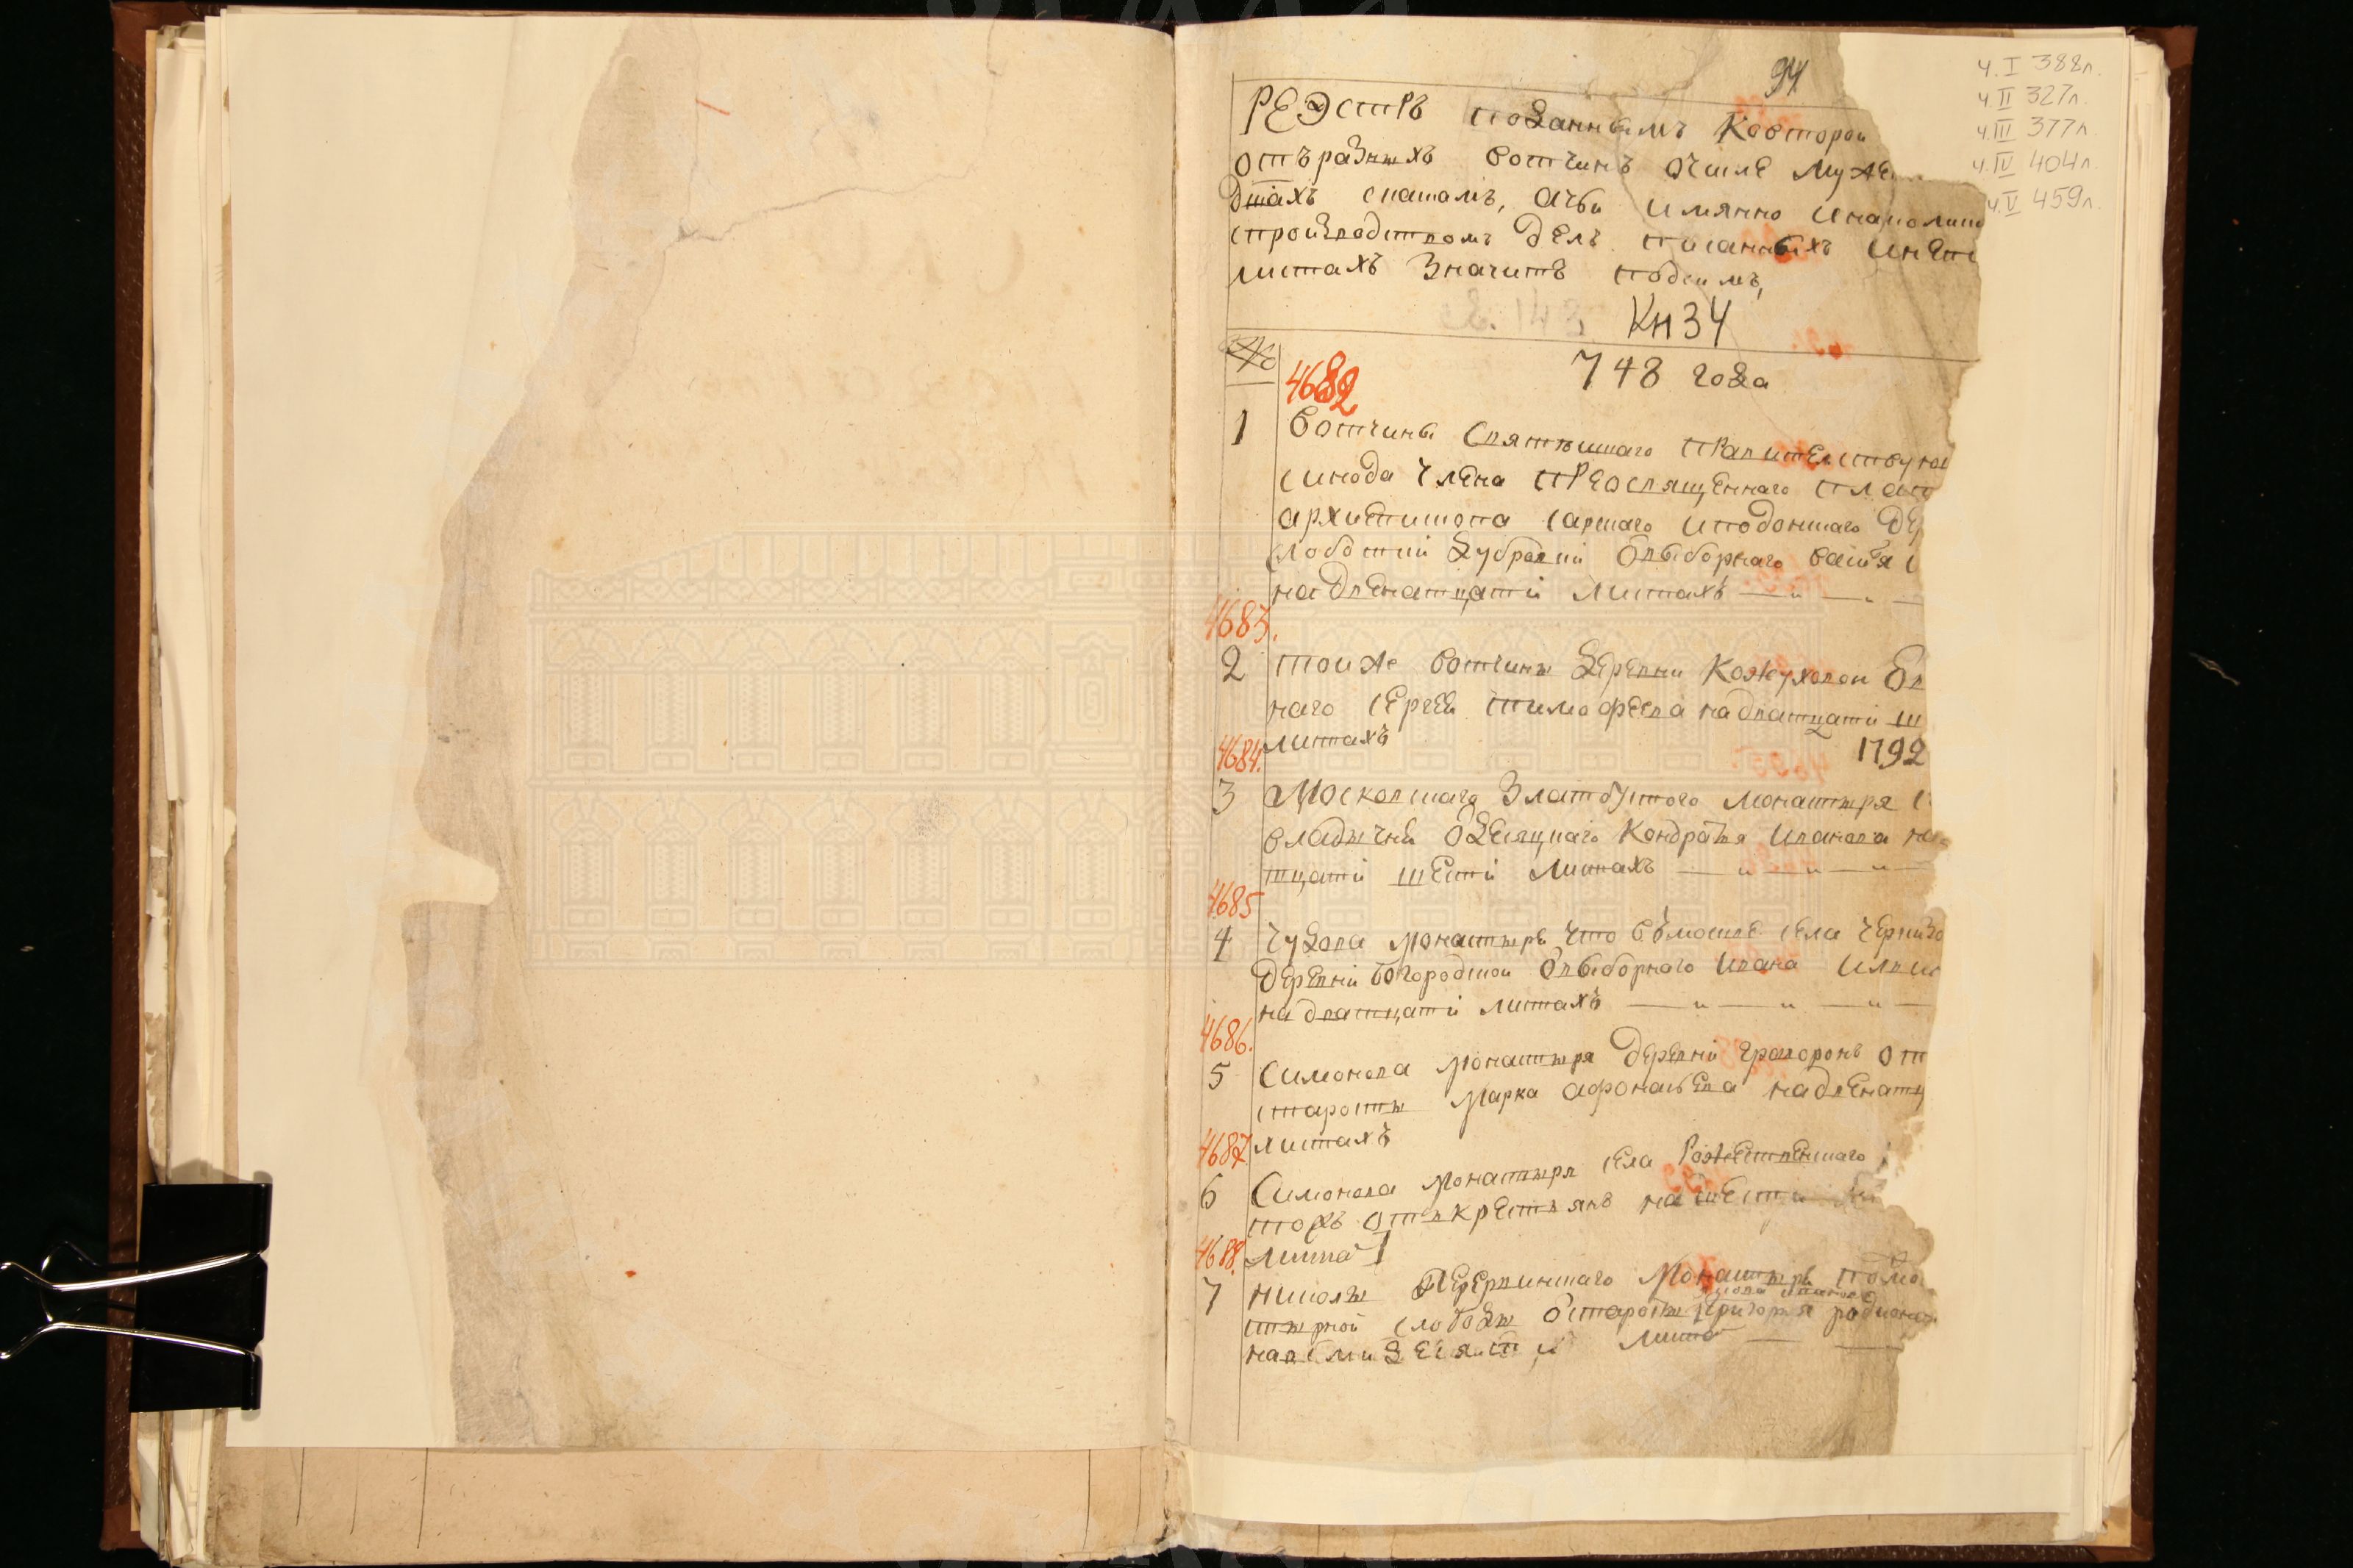 94
ч. I 388л.
ч. II 327л.
ч. III 377л.
ч. IV 404л.
ч. V 459л.
РЕЭстръ поданнымъ Ковторои
отъ разныхъ вотчинъ очиле муже
душахъ скаскамъ, ачьи имянно
спроизводствомъ делъ писанныхъ
листахъ значитъ подсимъ,
Кн 34
№
748 года
4682
1 Вотчины Святѣишаго правителствую
синода члена преосвященнаго плат
архиепископа сарскаго иподонскаго де
слободкии дубровки овыборнаго
надвенатцати листахъ
4683.
2 тоиже вотчины деревни Кожуховои Ов
наго сергея тимофеева надватцати ш
листахъ
1792
4684.
3 Московскаго Златоустого монастыря с
владычни одесяцкаго Кондратья иванова
тцати шести листахъ
4685
4 чудова монастыря что вмоскве села черкизо
деревни богородской овыборнаго ивана
надватцати листахъ
4686.
5 Симонова монастыря деревни граворонъ от
старосты марка афонасьева надвенатц
листахъ
4687
6 Симонова монастыря села Рожественскаго
крестьянъ нашести
листа
4688.
7 николы Перервинскаго монастыря
стырнои слободы остаросты григорья родионо
листа